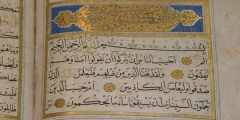 بسم الله الرحمن الرحيم
الم احسب الناس ان يتركوا ان يقولوا امنا وهم لا
يفتنون ولقد فتنا الذين من قبلهم فليعلمن
الله الذين صدقوا وليعلمن الكاذبين ام حسب الذين
يعملون السيئات ان يسبقونا ساء ما يحكمون